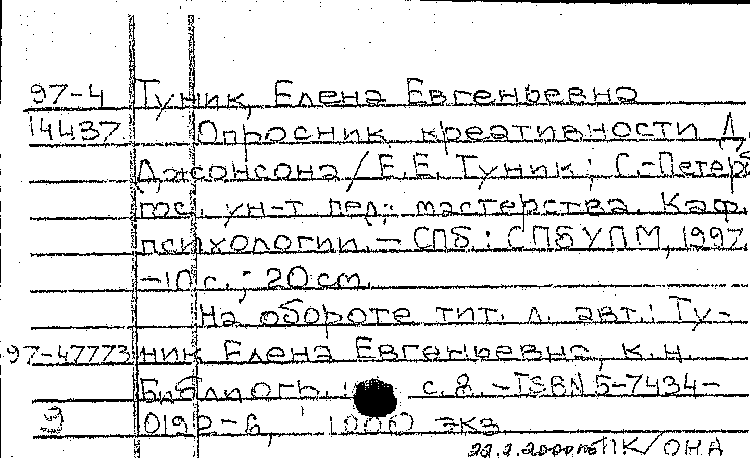 97-4 Туник, Елена Евгеньевна
14437 Опросник креативности Д.
Джонсона / Е.Е. Туник; С.-Петерб.
гос. ун-т пед. мастерства. Каф.
психологии. - СПб.: СПБУПМ, 1997.
-10 с.; 20 см.
На обороте тит. л. авт.: Ту-
97-47773 ник Елена Евгеньевна, к.н.
Библиогр.: с. 8. - ISBN 5-7434-
0192-6, 1000 экз.
ПК/ОНА